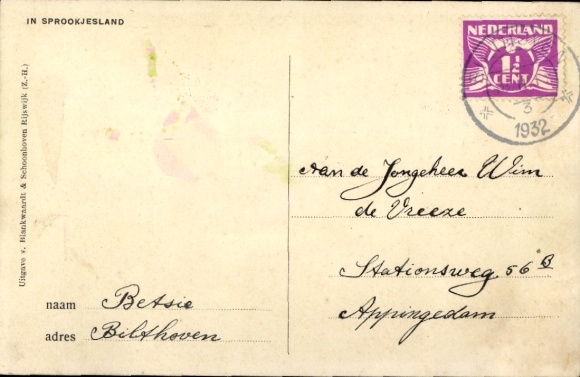 IN SPROOKJESLAND
NEDERLAND
1½
CENT
3
1932
Uitgave v. Blankwaardt & Schoonhoven Rijswijk (Z.-H.)
Aan de Jongeheer Wim
de Vreeze
Stationsweg 56 B
Appingedam
naam Betsie
adres Bilthoven